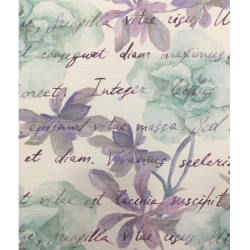 fringilla vitae risus. U
et consequat diam maximus
oreet. Integer lectus
euismod vitae massa. Sed
et diam. Vivamus sceleri
vitae est lacinia suscipit
fringilla vitae risus. U